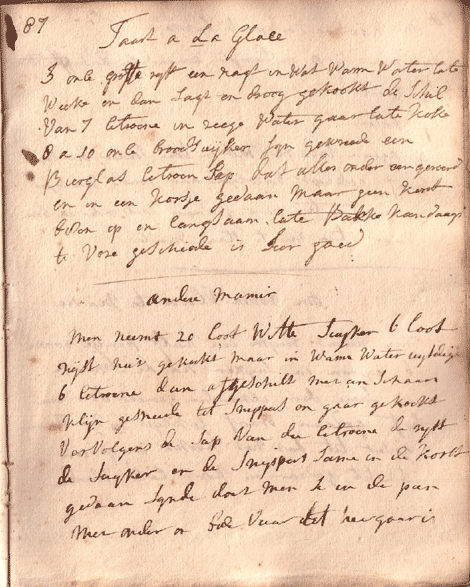 87
Taart a La Glace
3 onse grofte ryst een nagt in Wat Warm Water late
Weeke en dan Sagt en droog gekookt de Schil
Van 7 Citroene in rege Water gaar late Koke
8 a 10 onse broodsuyker syn gewreve een
Bierglas Citroen Sap dat alles onder een geroerd
en in een korsje gedaan maar geen korst
boven op en langsaam late Bakke kan daags
te Vore geschiede is Seer goed
andere manier
Men neemt 20 loot Witte Suyker 6 loot
ryst niet gekookt maar in Warm Water
6 Citroene dun afgeschilt met een Schaar
klyn gesneede tot Snippers en gaar gekookt
Vervolgens de Sap Van die Citroene de ryst
de Suyker en de Snippers Same in de korst
gedaan Synde doet men Se in de pan
met onder en bove Vuur tot hee gaar is